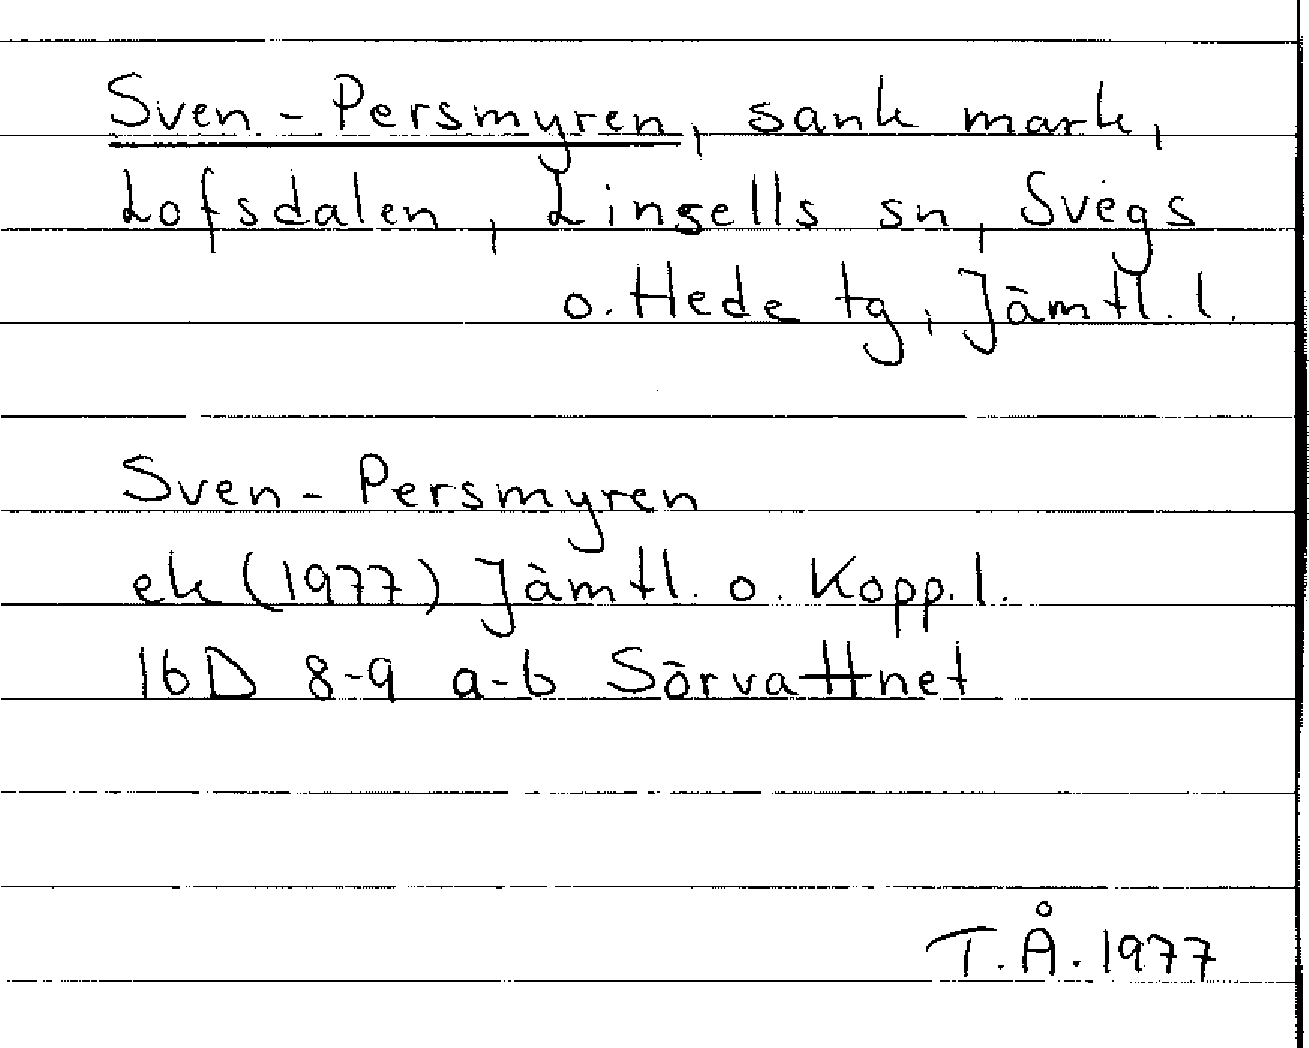 Sven-Persmyren, sank mark,
Lofsdalen, Linsells sn, Svegs
o. Hede tg, Jämtl. l.
Sven-Persmyren
ek (1977) Jämtl. o. Kopp. l.
16D 8-9 a-b Sörvattnet
T.Å. 1977